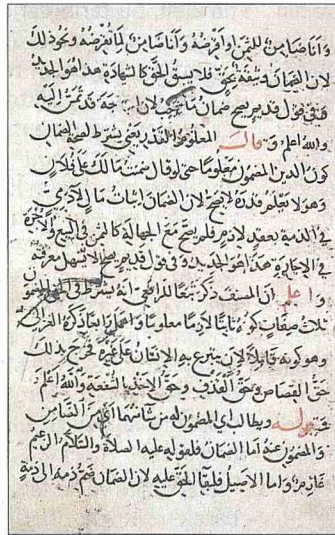 وأنا ضامن للثمن أو أقرضه وأنا ضامن لما تقرضه ونحو ذلك
لأن الضمان وثيقة بحق فلا يسبق الحق كالشهادة هذا هو الجديد
ففي قول قديم يصح ضمان ما يجب لأن الحاجة قد تمس إليه
والله أعلم وقال المعلوم التقدير يعني يشترط لصحة الضمان
كون الدين المضمون معلوما حتى لو قال ضمنت مالك على فلان
وهو لا يعلم قدره لا يصح لأن الضمان إثبات مال لآدمي
في الذمة بعقد لازم فلم يصح مع الجهالة كالثمن في البيع والأجرة
في الإجارة هذا هو الجديد وفي قول قديم يصح لأنه تسهل معرفته
واعلم أن المصنف ذكر تبعا للرافعي أنه يشترط في الحق المضمون
ثلاث صفات كونه ثابتا لازما معلوما وأهملا رابعا ذكره الغزالي
وهو كونه قابلا لأن يتبرع به الإنسان على غيره فخرج بذلك
حق القصاص وحق القذف وحق الأخذ بالشفعة والله أعلم
قوله ويطالب أي المضمون له من شاء منهما أي من الضامن
والمضمون عنه أما الضمان فلقوله عليه الصلاة والسلام الزعيم
غارم وأما الأصيل فلبقاء الحق عليه لأن الضمان ضم ذمة إلى ذمة